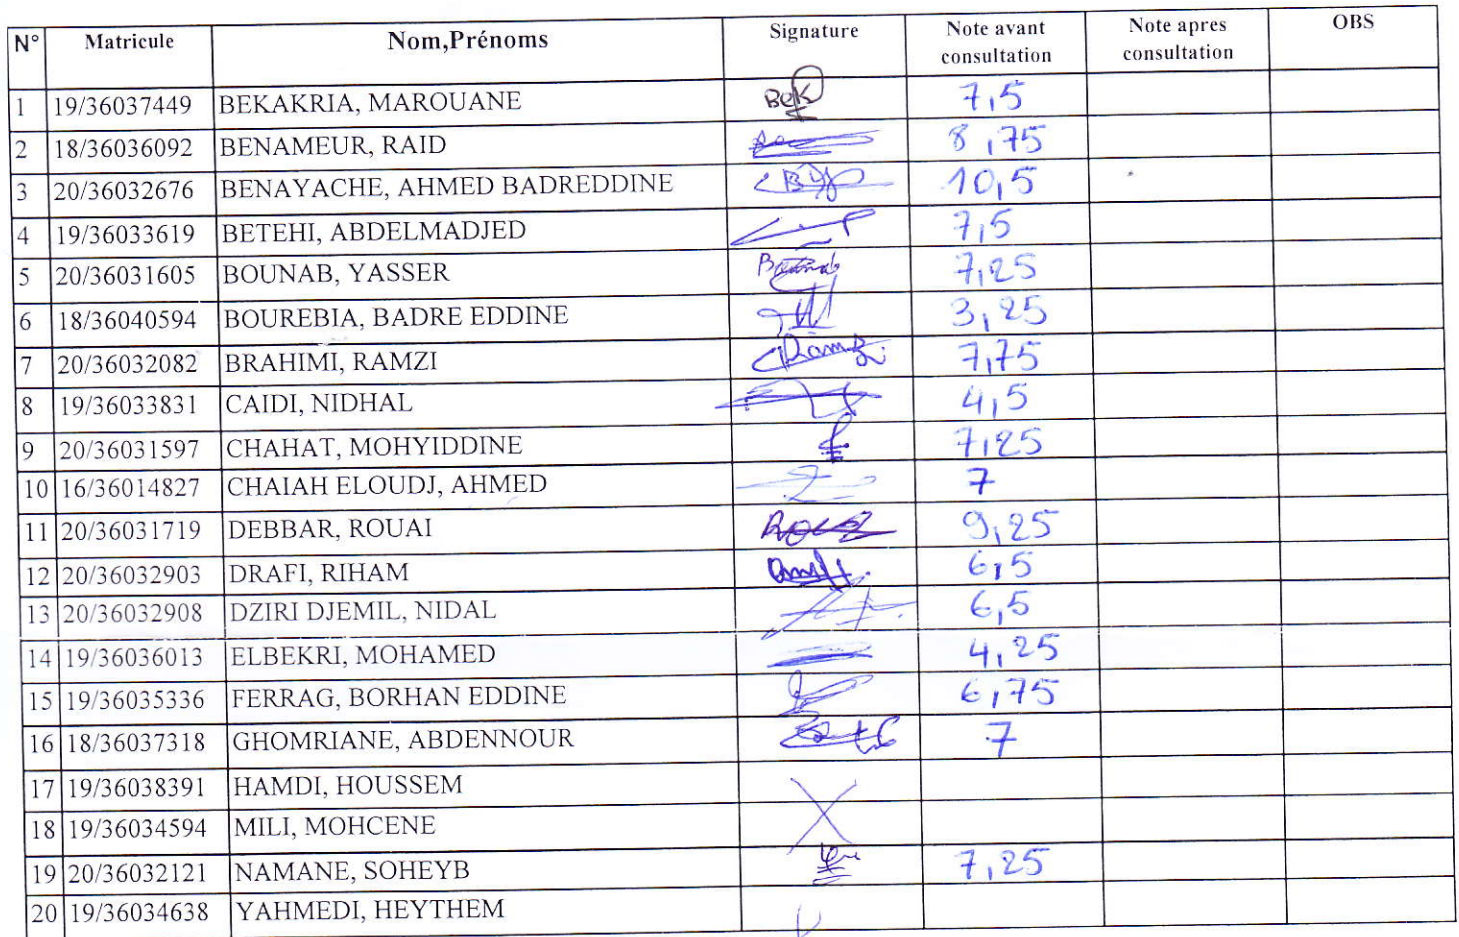 N° Matricule Nom,Prénoms Signature Note avant consultation Note apres consultation OBS
1 19/36037449 BEKAKRIA, MAROUANE Bek 7,5
2 18/36036092 BENAMEUR, RAID 8,75
3 20/36032676 BENAYACHE, AHMED BADREDDINE 10,5
4 19/36033619 BETEHI, ABDELMADJED 7,5
5 20/36031605 BOUNAB, YASSER 7,25
6 18/36040594 BOUREBIA, BADRE EDDINE 3,25
7 20/36032082 BRAHIMI, RAMZI Ramzi 7,75
8 19/36033831 CAIDI, NIDHAL 4,5
9 20/36031597 CHAHAT, MOHYIDDINE 7,25
10 16/36014827 CHAIAH ELOUDJ, AHMED 7
11 20/36031719 DEBBAR, ROUAI 9,25
12 20/36032903 DRAFI, RIHAM 6,5
13 20/36032908 DZIRI DJEMIL, NIDAL 6,5
14 19/36036013 ELBEKRI, MOHAMED 4,25
15 19/36035336 FERRAG, BORHAN EDDINE 6,75
16 18/36037318 GHOMRIANE, ABDENNOUR 7
17 19/36038391 HAMDI, HOUSSEM
18 19/36034594 MILI, MOHCENE
19 20/36032121 NAMANE, SOHEYB 7,25
20 19/36034638 YAHMEDI, HEYTHEM